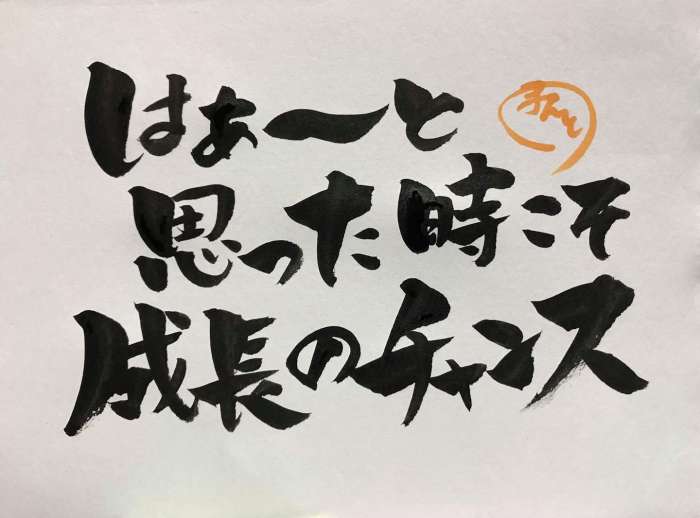 はぁーと
思った時こそ
成長のチャンス